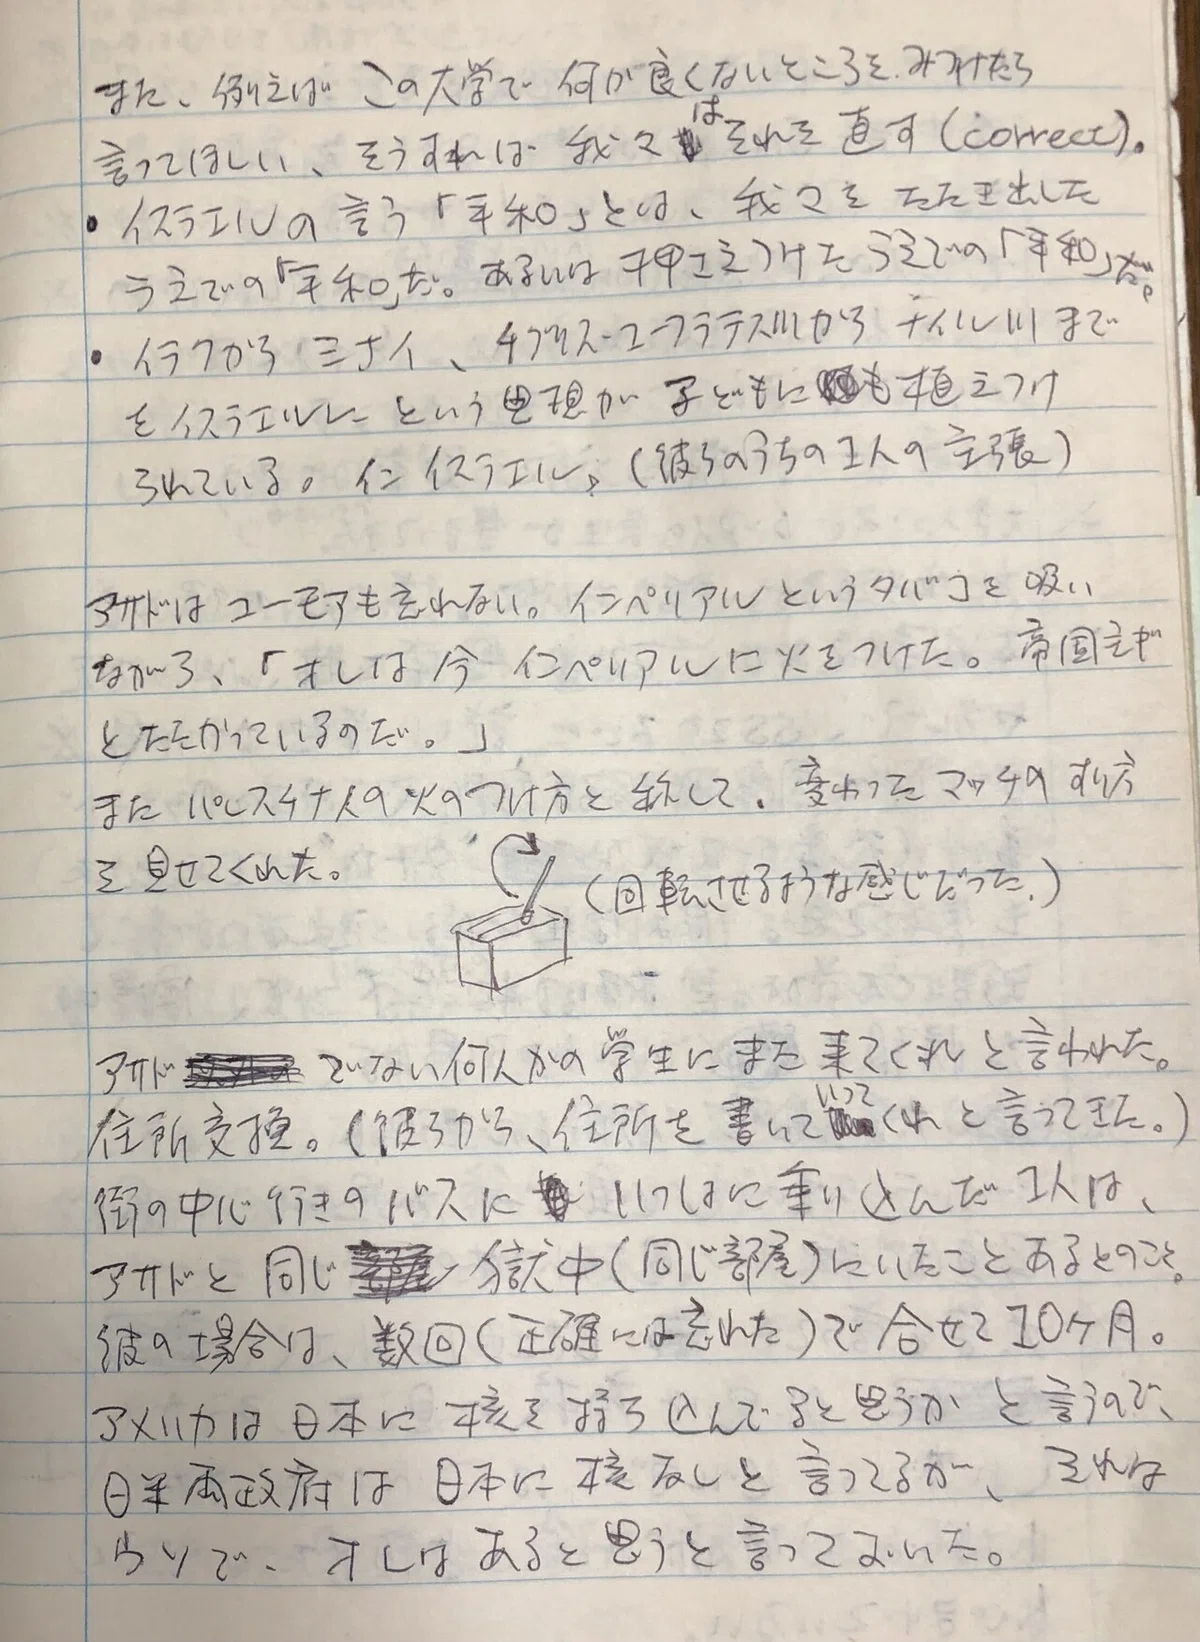 また、例えば この大学で 何か良くないところを、みつけたら
言ってほしい、そうすれば 我々は それを 直す(correct)。
・イスラエルの言う「平和」とは、我々を たたき出した
うえでの「平和」だ。あるいは 押さえつけた うえでの「平和」だ。
・イラクから ミナイ、チグリス・ユーフラテス川から ナイル川まで
をイスラエルに という思想が 子どもにも植えつけ
られている。イン イスラエル。(彼らのうちの1人の主張)
アサドは ユーモアも忘れない。インペリアルというタバコを 吸い
ながら、「オレは 今 インペリアルに火をつけた。帝国主ギ
とたたかっているのだ。」
また パレスチナ人の火のつけ方と称して、変わったマッチのすり方
を見せてくれた。
(回転させるような感じだった。)
アサド でない何人かの 学生に また 来てくれ と言われた。
住所交換。(彼らから、住所を 書いていってくれと言ってきた。)
街の中心行きのバスに いっしょに乗り込んだ1人は、
アサドと 同じ 獄中(同じ部屋)にいたことあるとのこと。
彼の場合は、数回(正確には忘れた)で合せて10ケ月。
アメリカは日本に 核を持ち込んでると思うか と言うので、
日米両政府は 日本に 核なしと言ってるが、それは
ウソで、オレはあると思うと言っておいた。